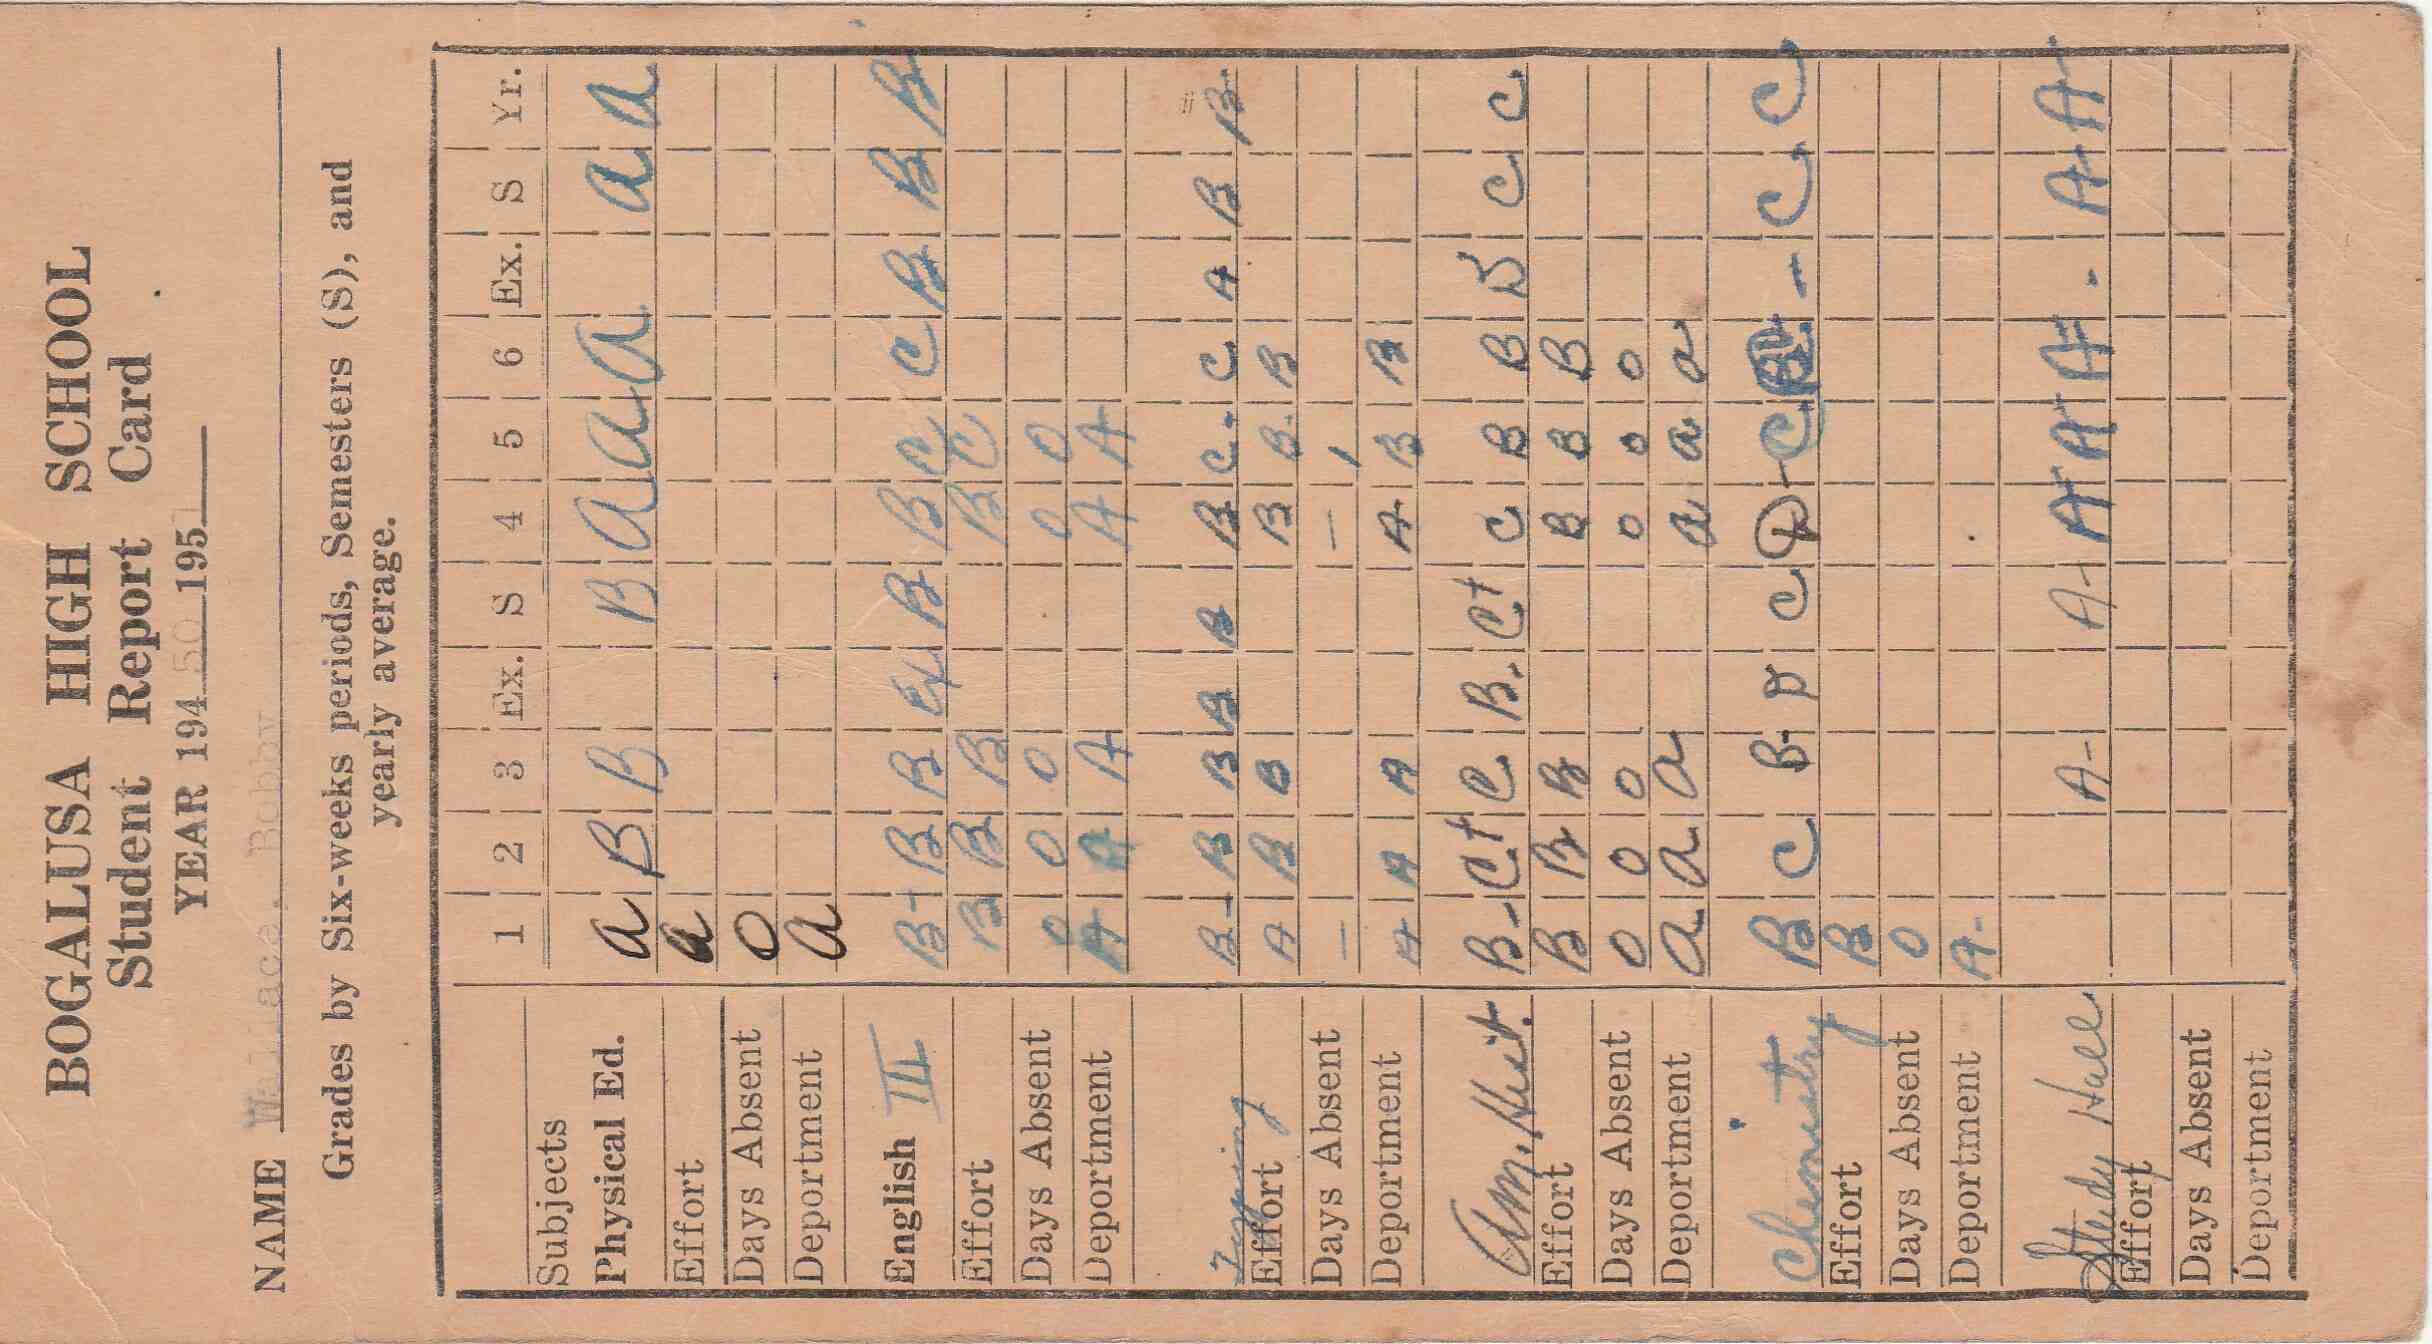 BOGALUSA HIGH SCHOOL
Student Report Card
YEAR 194 50 195 1
NAME Wallace, Bobby
Grades by Six-weeks periods, Semesters (S), and
yearly average.
1 2 3 Ex. S 4 5 6 Ex. S Yr.
Subjects
Physical Ed. a B B B a a a a a
Effort a
Days Absent 0
Deportment a
English III B- B B Ex B B C C B B B
Effort B B B B C
Days Absent 0 0 0 0 0
Deportment A A A A A
Typing B- B B B B B C- C A B B-
Effort A B B B B- B
Days Absent — — 1
Deportment A A A A B B
Am. Hist. B- C+ C B- C+ C B B C C
Effort B B B B B B
Days Absent 0 0 0 0 0 0
Deportment a a a a a a
Chemistry B C B- D C D- C - C C
Effort B
Days Absent 0
Deportment A-
Study Hall A- A- A- A- A- - A- A-
Effort
Days Absent
Deportment